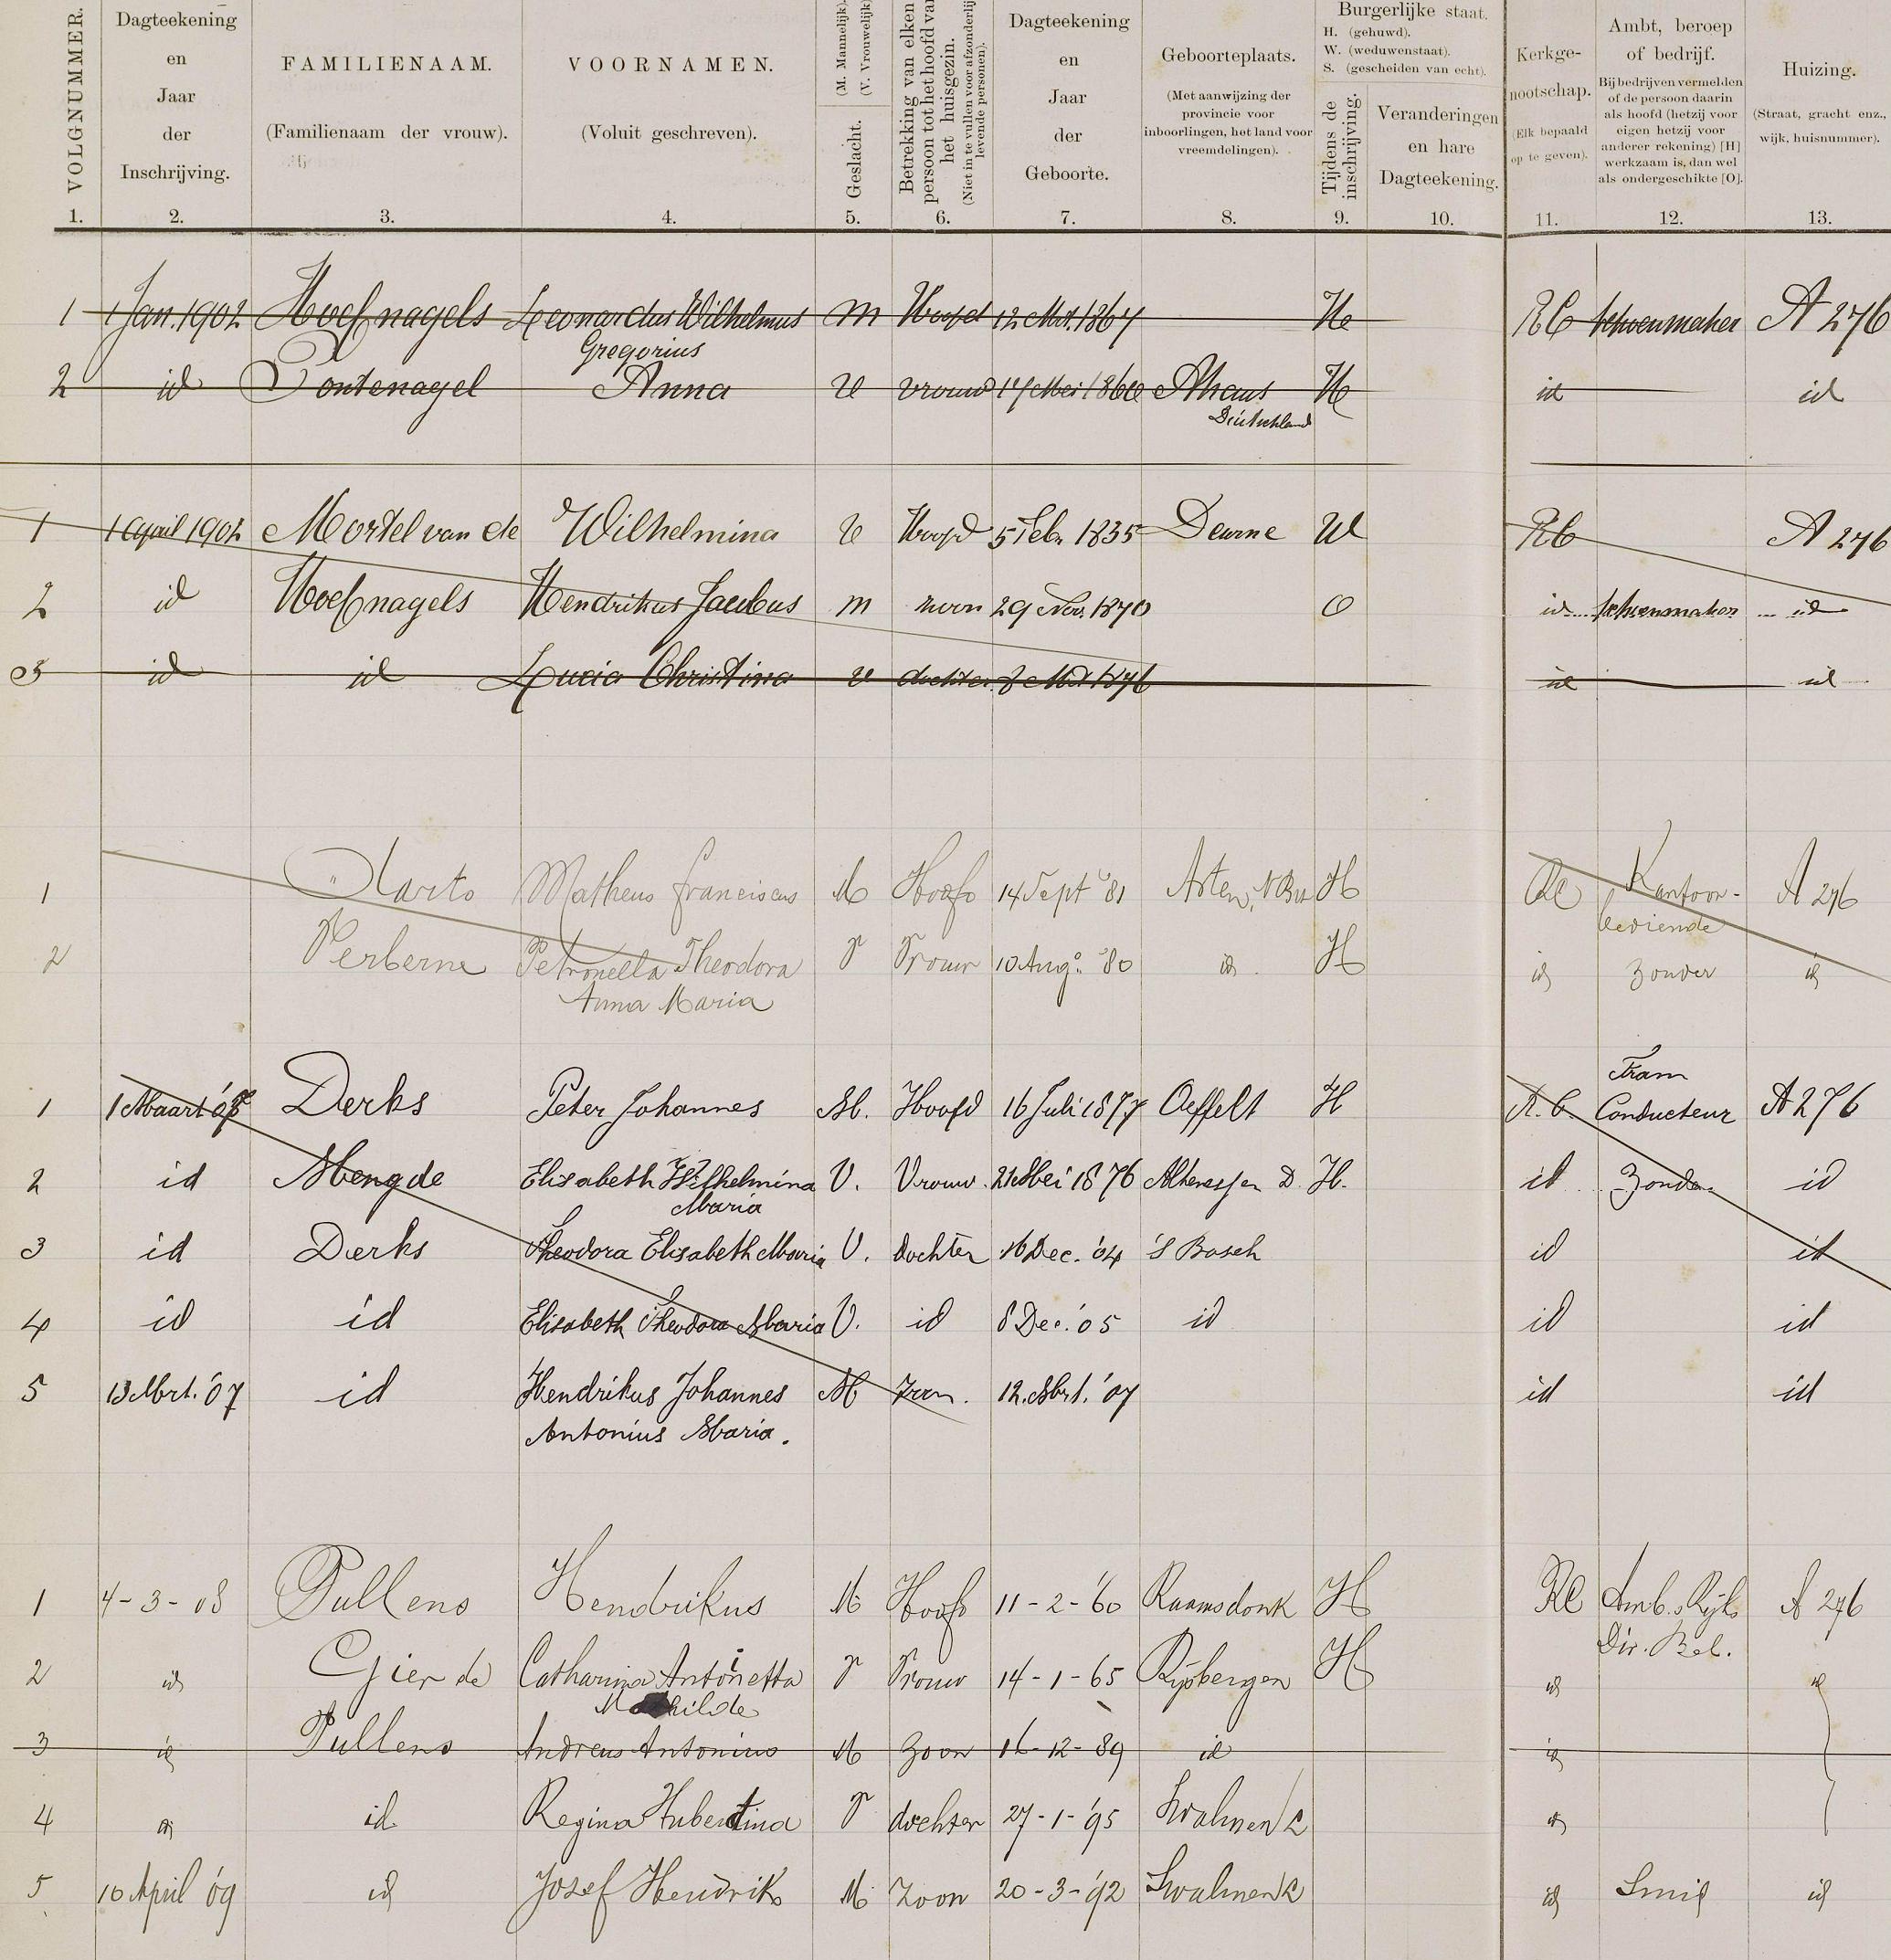 VOLGNUMMER.
Dagteekening en Jaar der Inschrijving.
FAMILIENAAM.
(Familienaam der vrouw).
VOORNAMEN.
(Voluit geschreven).
Geslacht.
(M. Mannelijk).
(V. Vrouwelijk)
Betrekking van elken persoon tot het hoofd van het huisgezin.
(Niet in te vullen voor afzonderlijk levende personen).
Dagteekening en Jaar der Geboorte.
Geboorteplaats.
(Met aanwijzing der provincie voor inboorlingen, het land voor vreemdelingen).
Burgerlijke staat.
H. (gehuwd).
W. (weduwenstaat).
S. (gescheiden van echt).
Tijdens de inschrijving.
Veranderingen en hare Dagteekening.
Kerkgenootschap.
(Elk bepaald op te geven).
Ambt, beroep of bedrijf.
Bij bedrijven vermelden of de persoon daarin als hoofd (hetzij voor eigen hetzij voor anderer rekening) [H] werkzaam is, dan wel als ondergeschikte [O].
Huizing.
(Straat, gracht enz., wijk, huisnummer).
1. 2. 3. 4. 5. 6. 7. 8. 9. 10. 11. 12. 13.
1 1 Jan. 1902 Hoefnagels Leonardus Wilhelmus m Hoofd 12 Mrt. 1867 H RC schoenmaker A 276
Gregorius
2 id Pontenagel Anna V vrouw 17 Mei 1866 Ahaus H id id
Deutschland
1 1 April 1902 Mortel van de Wilhelmina V Hoofd 5 Feb. 1835 Deurne W RC A 276
2 id Hoefnagels Hendrikus Jacobus m zoon 29 Nov. 1870 O id schoenmaker id
3 id id Lucia Christina v dochter 8 Mrt 1876 id id
1 Marto Matheus Franciscus M Hoofd 14 Sept '81 Asten, N Br H RC Kantoor- A 276
bediende
2 Verberne Petronella Theodora V Vrouw 10 Aug. '80 id H id zonder id
Anna Maria
Tram
1 1 Maart '07 Derks Peter Johannes M. Hoofd 16 Juli 1877 Oeffelt H R.C. Conducteur A 276
2 id Mengde Elisabeth Wilhelmina V. Vrouw. 21 Mei 1876 Altenessen D. H. id Zonder id
Maria
3 id Derks Theodora Elisabeth Maria V. dochter 16 Dec. '04 's Bosch id id
4 id id Elisabeth Theodora Maria V. id 8 Dec. '05 id id id
5 13 Mrt. '07 id Hendrikus Johannes M Zoon. 12. Mrt. '07 id id
Antonius Maria.
1 4-3-08 Pullens Hendrikus M Hoofd 11-2-'60 Raamsdonk H RC Amb. Rijks A 276
Dir. Bel.
2 id Gier de Catharina Antonetta V Vrouw 14-1-65 Rijsbergen H id id
Mathilde
3 id Pullens Andreas Antonius M Zoon 16-12-89 id id
4 id id Regina Hubertina V dochter 27-1-'95 Swalmen L id
5 10 April '09 id Josef Hendrik M Zoon 20-3-'92 Swalmen L id Smid id